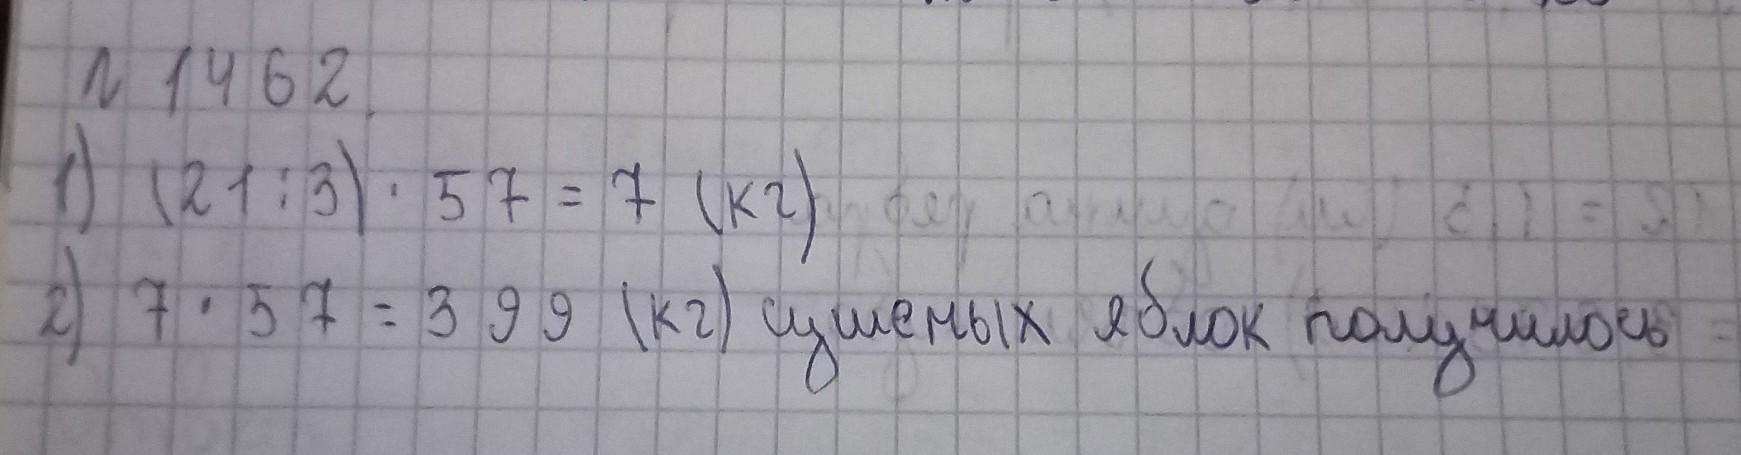 n 1462.
1) (21:3)·57=7 (кг)
2) 7·57=399 (кг) сушеных яблок получилось